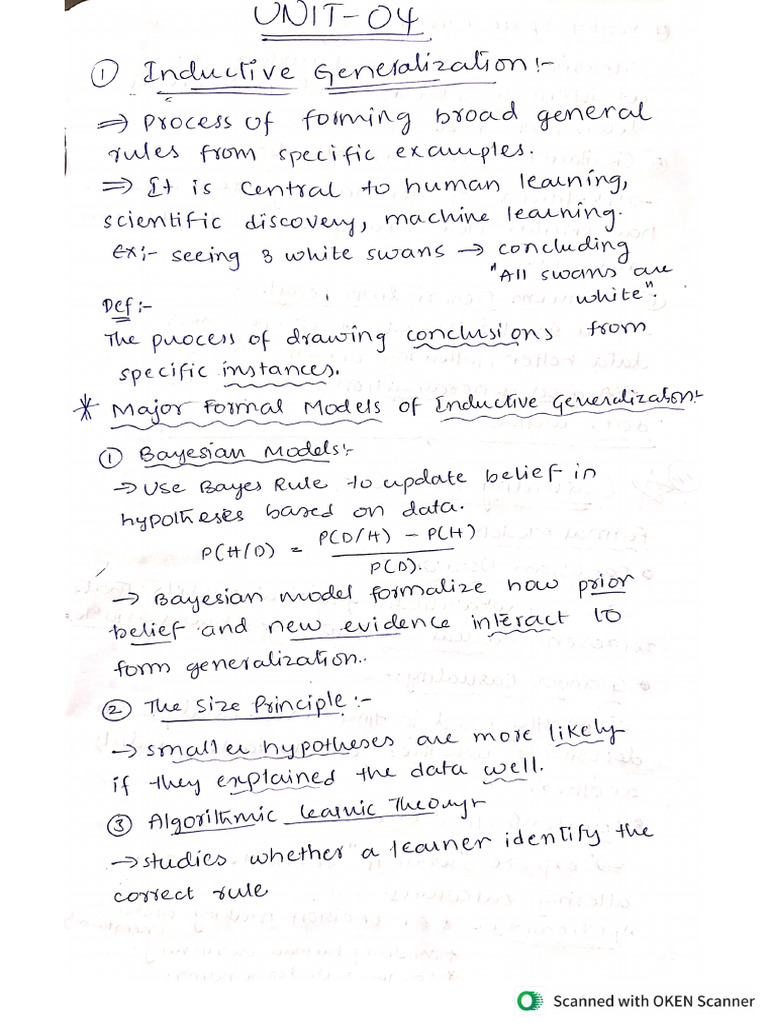 UNIT-04
① Inductive Generalization:-
⇒ Process of forming broad general
rules from specific examples.
⇒ It is central to human learning,
scientific discovery, machine learning.
Ex:- seeing 3 white swans → concluding
"All swans are
white".
Def:-
The process of drawing conclusions from
specific instances.
* Major Formal Models of Inductive Generalization:-
① Bayesian Models:-
→ Use Bayes Rule to update belief in
hypotheses based on data.
P(H/D) = P(D/H) - P(H)
P(D).
→ Bayesian model formalize how prior
belief and new evidence interact to
form generalization..
② The Size Principle:-
→ smaller hypotheses are more likely
if they explained the data well.
③ Algorithmic learnic Theory:-
→ studies whether a learner identify the
correct rule
Scanned with OKEN Scanner